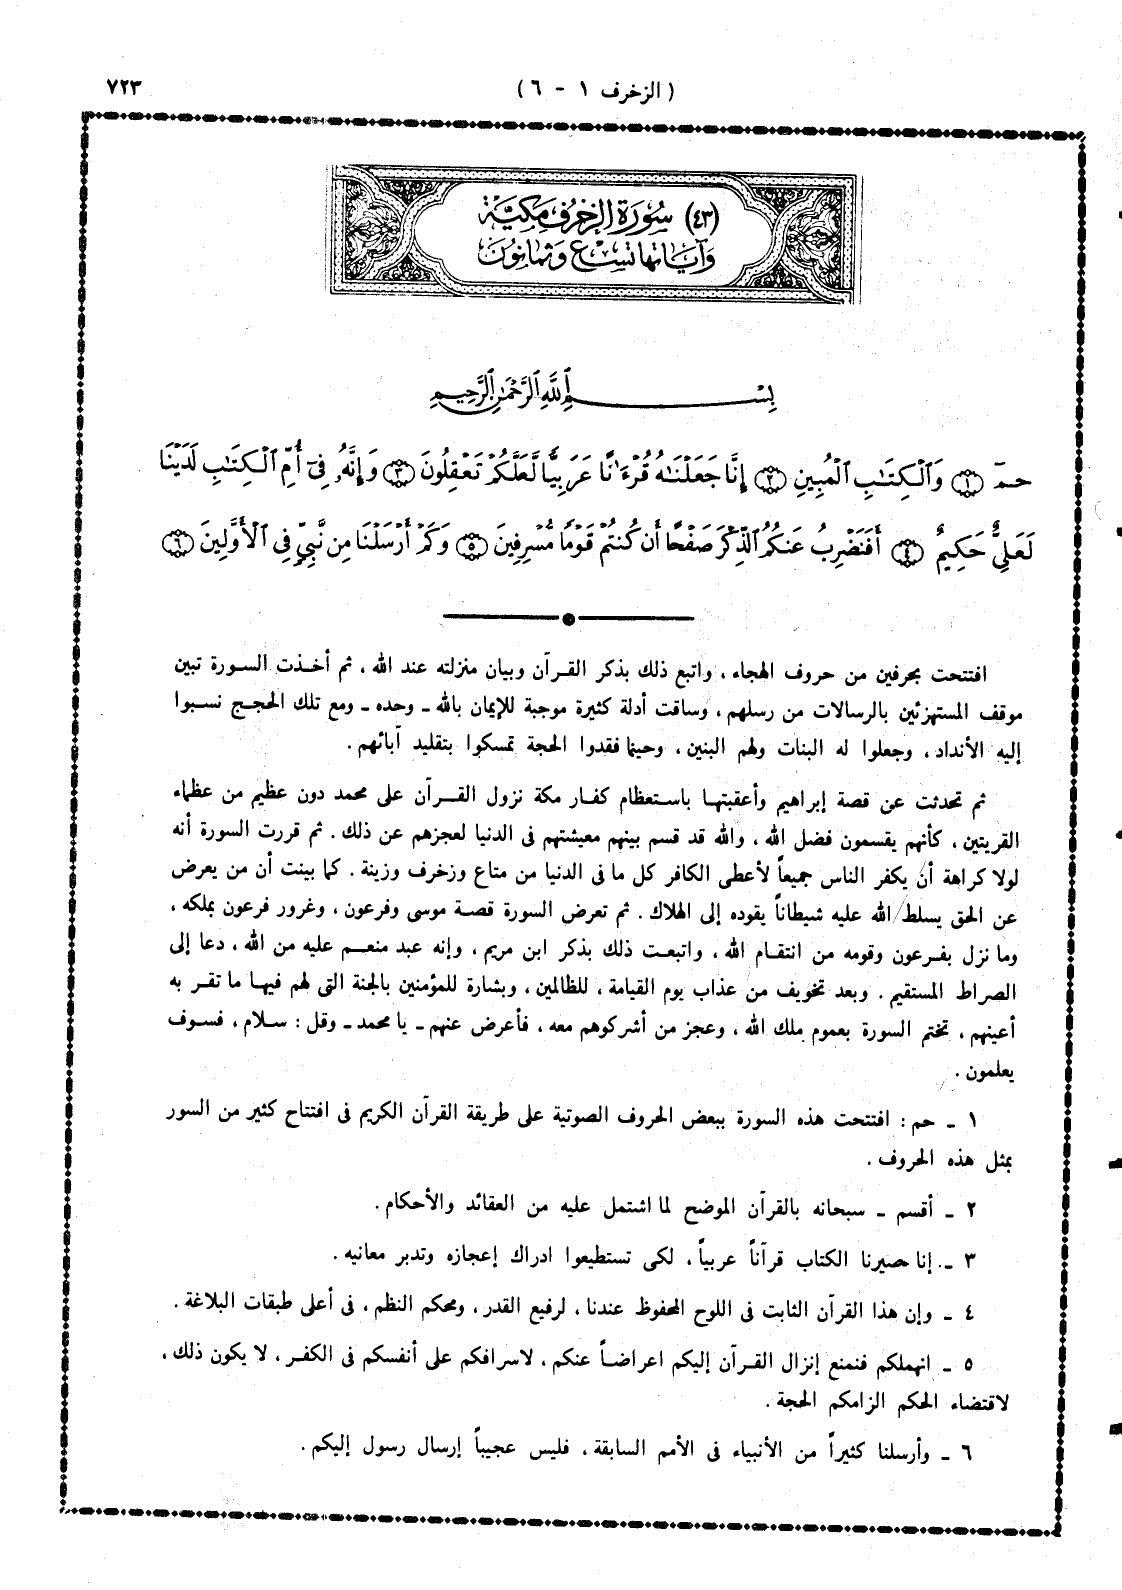 ( الزخرف ١ - ٦ )
٧٢٣
(٤٣) سُورَة الزخرف مكيّة
وَآيَاتها تسْع وَثمانون
بِسْمِ ٱللَّهِ ٱلرَّحْمَٰنِ ٱلرَّحِيمِ
حمٓ ١ وَٱلْكِتَٰبِ ٱلْمُبِينِ ٢ إِنَّا جَعَلْنَٰهُ قُرْءَٰنًا عَرَبِيًّا لَّعَلَّكُمْ تَعْقِلُونَ ٣ وَإِنَّهُۥ فِىٓ أُمِّ ٱلْكِتَٰبِ لَدَيْنَا
لَعَلِىٌّ حَكِيمٌ ٤ أَفَنَضْرِبُ عَنكُمُ ٱلذِّكْرَ صَفْحًا أَن كُنتُمْ قَوْمًا مُّسْرِفِينَ ٥ وَكَمْ أَرْسَلْنَا مِن نَّبِىٍّ فِى ٱلْأَوَّلِينَ ٦
افتتحت بحرفين من حروف الهجاء ، واتبع ذلك بذكر القرآن وبيان منزلته عند الله ، ثم أخذت السورة تبين
موقف المستهزئين بالرسالات من رسلهم ، وساقت أدلة كثيرة موجبة للإيمان بالله ـ وحده ـ ومع تلك الحجج نسبوا
إليه الأنداد ، وجعلوا له البنات ولهم البنين ، وحينما فقدوا الحجة تمسكوا بتقليد آبائهم .
ثم تحدثت عن قصة إبراهيم وأعقبتها باستعظام كفار مكة نزول القرآن على محمد دون عظيم من عظماء
القريتين ، كأنهم يقسمون فضل الله ، والله قد قسم بينهم معيشتهم فى الدنيا لعجزهم عن ذلك . ثم قررت السورة أنه
لولا كراهة أن يكفر الناس جميعاً لأعطى الكافر كل ما فى الدنيا من متاع وزخرف وزينة . كما بينت أن من يعرض
عن الحق يسلط الله عليه شيطاناً يقوده إلى الهلاك . ثم تعرض السورة قصة موسى وفرعون ، وغرور فرعون بملكه ،
وما نزل بفرعون وقومه من انتقام الله ، واتبعت ذلك بذكر ابن مريم ، وإنه عبد منعم عليه من الله ، دعا إلى
الصراط المستقيم . وبعد تخويف من عذاب يوم القيامة ، للظالمين ، وبشارة للمؤمنين بالجنة التى لهم فيها ما تقر به
أعينهم ، تختم السورة بعموم ملك الله ، وعجز من أشركوهم معه ، فأعرض عنهم ـ يا محمد ـ وقل : سلام ، فسوف
يعلمون .
١ ـ حم : افتتحت هذه السورة ببعض الحروف الصوتية على طريقة القرآن الكريم فى افتتاح كثير من السور
بمثل هذه الحروف .
٢ ـ أقسم ـ سبحانه بالقرآن الموضح لما اشتمل عليه من العقائد والأحكام .
٣ ـ إنا صيرنا الكتاب قرآناً عربياً ، لكى تستطيعوا ادراك إعجازه وتدبر معانيه .
٤ ـ وإن هذا القرآن الثابت فى اللوح المحفوظ عندنا ، لرفيع القدر ، ومحكم النظم ، فى أعلى طبقات البلاغة .
٥ ـ انهملكم فنمنع إنزال القرآن إليكم اعراضاً عنكم ، لاسرافكم على أنفسكم فى الكفر ، لا يكون ذلك ،
لاقتضاء الحكم الزامكم الحجة .
٦ ـ وأرسلنا كثيراً من الأنبياء فى الأمم السابقة ، فليس عجيباً إرسال رسول إليكم .